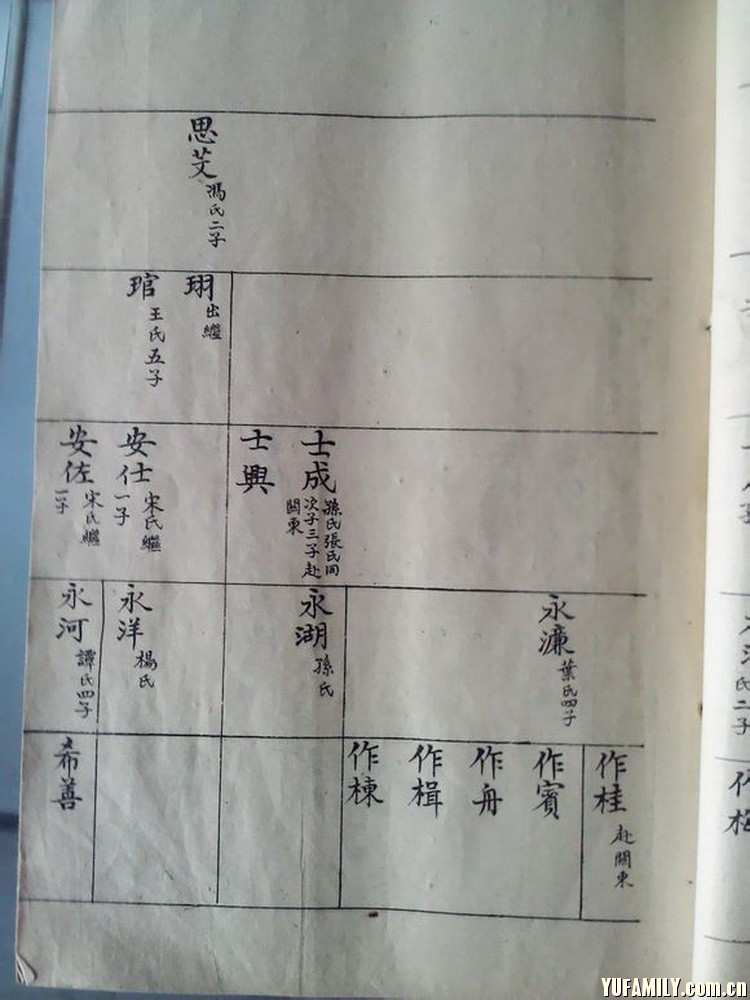 思芠
馮氏二子
珝
出繼
琯
王氏五子
士成
孫氏張氏同
次子三子赴
關東
士興
安仕
宋氏繼
一子
安佐
宋氏繼
一子
永濂
葉氏四子
永湖
孫氏
永洋
楊氏
永河
譚氏四子
作桂
赴關東
作賓
作舟
作楫
作棟
希善
氏二子
作梅
YUFAMILY.com.cn